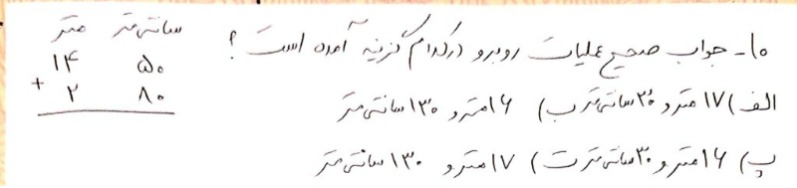 ۱۰- جواب صحیح عملیات روبرو درکدام گزینه آمده است؟
متر سانتی‌متر
۱۴ ۵۰
+ ۲ ۸۰
الف) ۱۷ متر و ۳۰ سانتی‌متر ب) ۱۶ متر و ۱۳۰ سانتی‌متر
پ) ۱۶ متر و ۳۰ سانتی‌متر ت) ۱۷ متر و ۱۳۰ سانتی‌متر